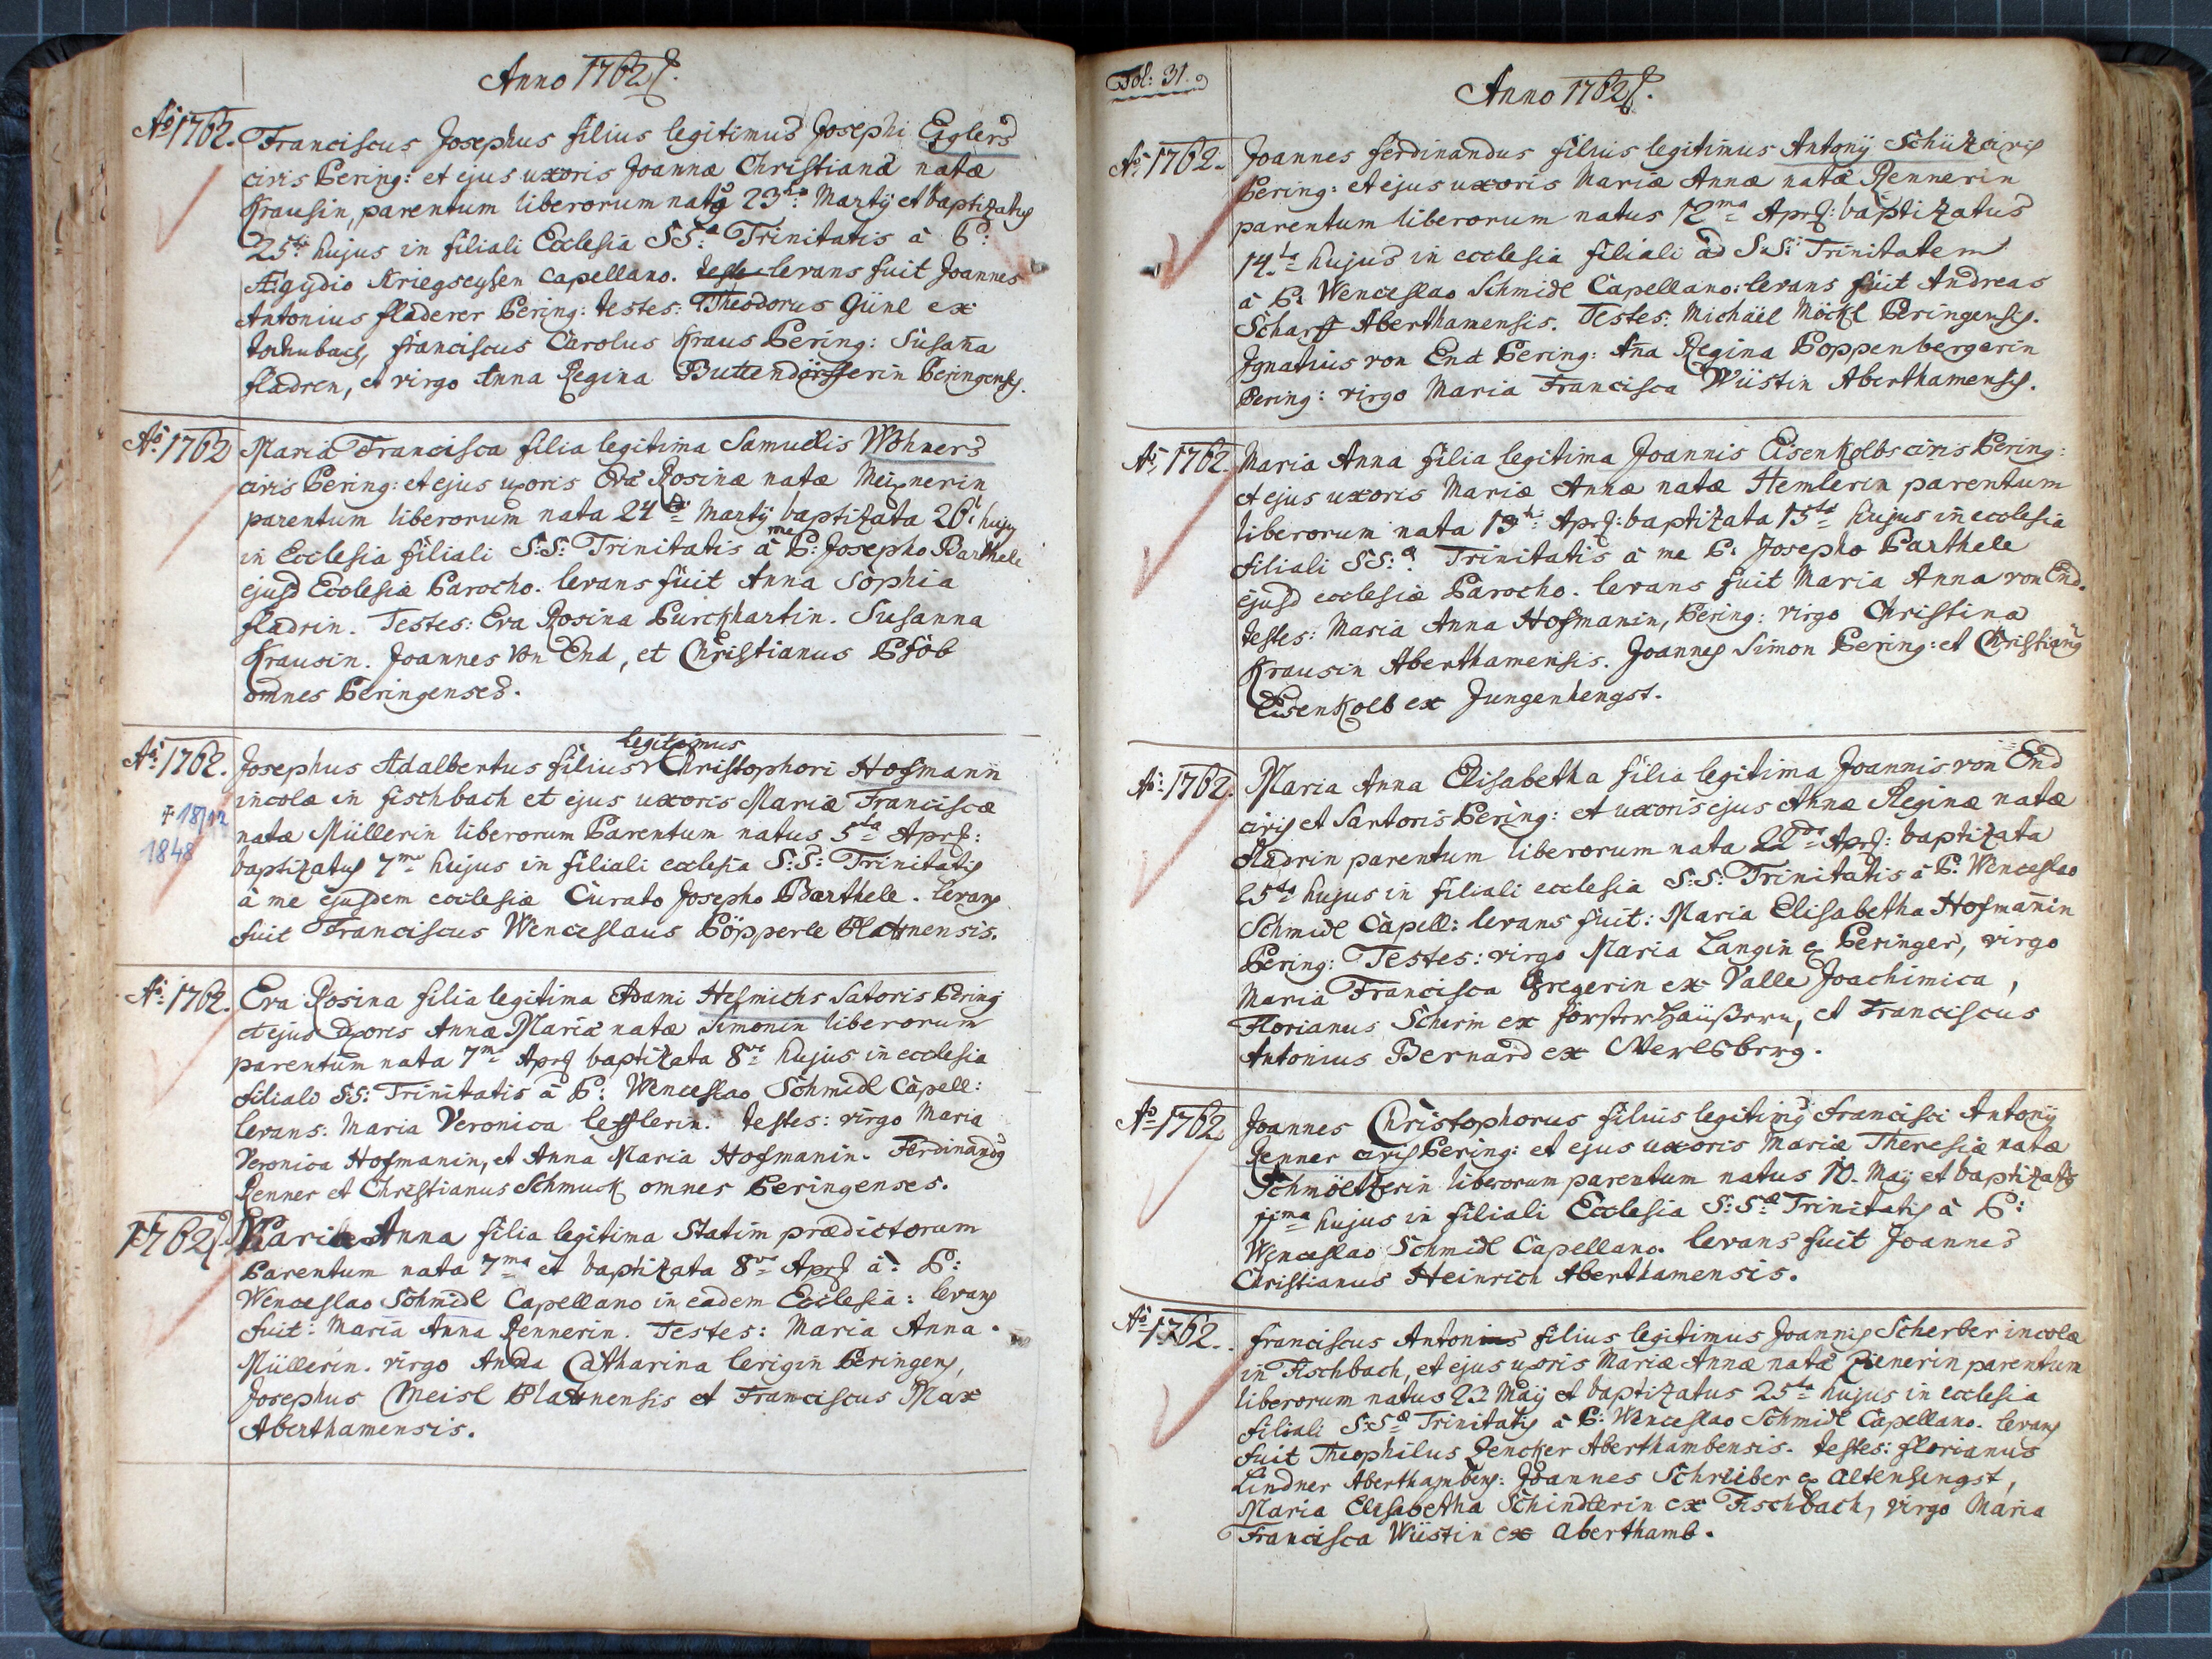 Anno 1762
Aō 1762. Franciscus Josephus filius legitimus Josephi Egglers
civis Pering: et ejus uxoris Joannæ Christianæ natæ
Krausin, parentum liberorum natus 23tio Martij et baptizatus
25to hujus in filiali Ecclesia SS: Trinitatis à P:
Ægydio Kriegseysen Capellano. levans fuit Joannes
Antonius fladerer Pering: testes: Theodorus Günl ex
franciscus Carolus Kraus Pering: Susaña
fladren, et virgo Anna Regina Peringensis.
Aō 1762 Maria Francisca filia legitima Samuelis Wohners
civis Pering: et ejus uxoris Eva Rosinæ natæ Meixnerin
parentum liberorum nata 24ta Martij baptizata 26: hujus
in Ecclesia filiali S:S: Trinitatis à me P: Josepho Barthele
ejusd Ecclesiæ Parocho. levans fuit Anna Sophia
fladrin. Testes: Eva Rosina Purckhartin. Susanna
Krausin. Joannes von End, et Christianus Psöb
omnes Peringenses.
legitimus
Aō: 1762. Josephus Adalbertus filius Christophori Hofmann
incolæ in fischbach et ejus uxoris Mariæ Franciscæ
+ 18/12
natæ Müllerin liberorum Parentum natus 5ta Apr:
1848
baptizatus 7ma hujus in filiali ecclesia S:S: Trinitatis
à me ejusdem ecclesiæ Curato Josepho Barthele. levans
fuit Franciscus Wenceslaus Pöpperle Platnensis.
Aō: 1762. Eva Rosina filia legitima Adami Hesmichs Satoris Pering
et ejus uxoris Annæ Mariæ natæ Simonin liberorum
parentum nata 7ma Apr baptizata 8va hujus in ecclesia
filiali S:S: Trinitatis à P: Wenceslao Schmidl Capell:
levans: Maria Veronica lefflerin. testes: virgo Maria
Veronica Hofmanin, et Anna Maria Hofmanin. Ferdinandus
Renner et Christianus Schmuck omnes Peringenses.
1762 Maria Anna filia legitima Statim prædictorum
Parentum nata 7ma et baptizata 8va Apr à: P:
Wenceslao Schmidl Capellano in eadem Ecclesia: levans
fuit: Maria Anna Rennerin. Testes: Maria Anna
Müllerin. virgo Anna Catharina lerigin Peringens,
Josephus Meisl Platnensis et Franciscus Max
Aberthamensis.
Fol: 31.
Anno 1762
Aō 1762. Joannes ferdinandus filius legitimus Antonij Schütz civis
Pering: et ejus uxoris Mariæ Annæ natæ Rennerin
parentum liberorum natus 12ma Apr: baptizatus
14.ta hujus in ecclesia filiali ad S.S: Trinitatem
à P: Wenceslao Schmidl Capellano: levans fuit Andreas
Scharff Aberthamensis. Testes: Michäel Möckl Peringensis.
Ignatius von End Pering: Aña Regina Poppenbergerin
Pering: virgo Maria Francisca Wüstin Aberthamensis.
Aō, 1762. Maria Anna filia legitima Joannis Eisenkolbs civis Pering:
et ejus uxoris Mariæ Annæ natæ Hemlerin parentum
liberorum nata 13tia Apr: baptizata 15ta hujus in ecclesia
filiali SS: Trinitatis à me P: Josepho Barthele
ejusd ecclesiæ Parocho. levans fuit Maria Anna von End.
testes: Maria Anna Hofmanin, Pering: virgo Christina
Krausin Aberthamensis. Joannes Simon Pering: et Christianus
Eisenkolb ex Jungenhengst.
Aō: 1762. Maria Anna Elisabetha filia legitima Joannis von End
civis et Sartoris Pering: et uxoris ejus Annæ Reginæ natæ
fladrin parentum liberorum nata 22da Apr: baptizata
25ta hujus in filiali ecclesia S:S: Trinitatis à P: Wenceslao
Schmidl Capell: levans fuit: Maria Elisabetha Hofmañin
Pering: Testes: virgo Maria Langin ex Peringer, virgo
Maria Francisca Gregerin ex Valle Joachimica,
Florianus Schirm ex försterhäußern, et Franciscus
Antonius Bernard ex Werlsberg.
Aō 1762 Joannes Christophorus filius legitimus Francisci Antonij
Renner civis Pering: et ejus uxoris Mariæ Theresiæ natæ
Schmöltzerin liberorum parentum natus 10. Maij et baptizatus
11ma hujus in filiali Ecclesia S:S: Trinitatis à P:
Wenceslao Schmidl Capellano. levans fuit Joannes
Christianus Heinrich Aberthamensis.
Aō 1762. franciscus Antonius filius legitimus Joannis Scherber incolæ
in Fischbach, et ejus uxoris Mariæ Annæ natæ Zienerin parentum
liberorum natus 23 Maij et baptizatus 25ta hujus in ecclesia
filiali S:S: Trinitatis à P: Wenceslao Schmidl Capellano. levans
fuit Theophilus Zencker Aberthambensis. testes: florianus
Lindner Aberthambens: Joannes Schreiber ex Altenhengst,
Maria Elisabetha Schindlerin ex Fischbach, virgo Maria
Francisca Wüstin ex Aberthamb.